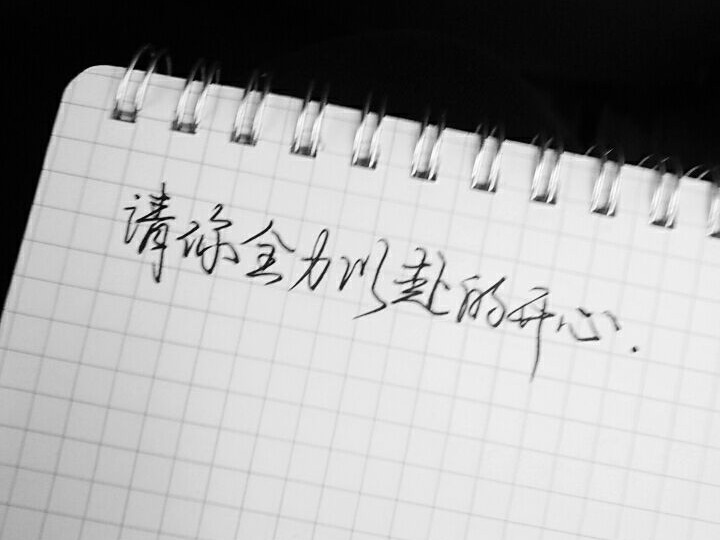 请你全力以赴的开心.